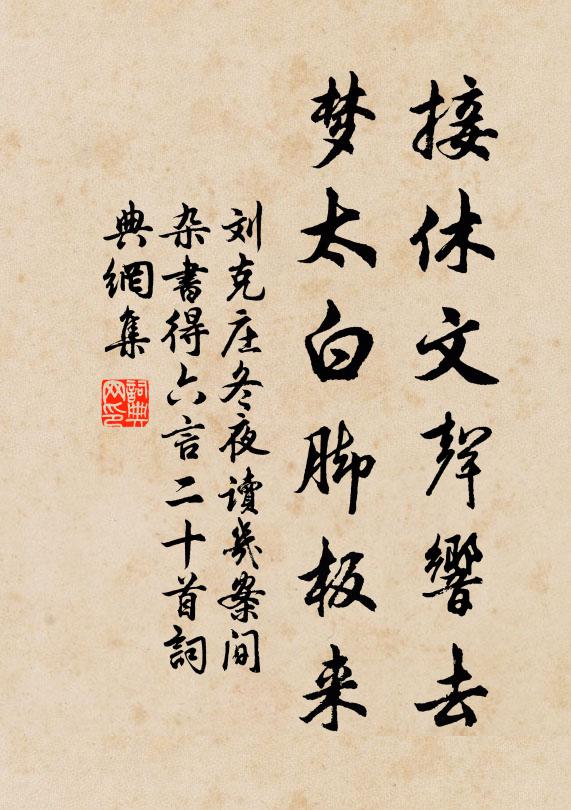 接休文聲響去
梦太白脚板来
刘克庄冬夜讀几案间
杂書得六言二十首詞
典網集
詞典网印